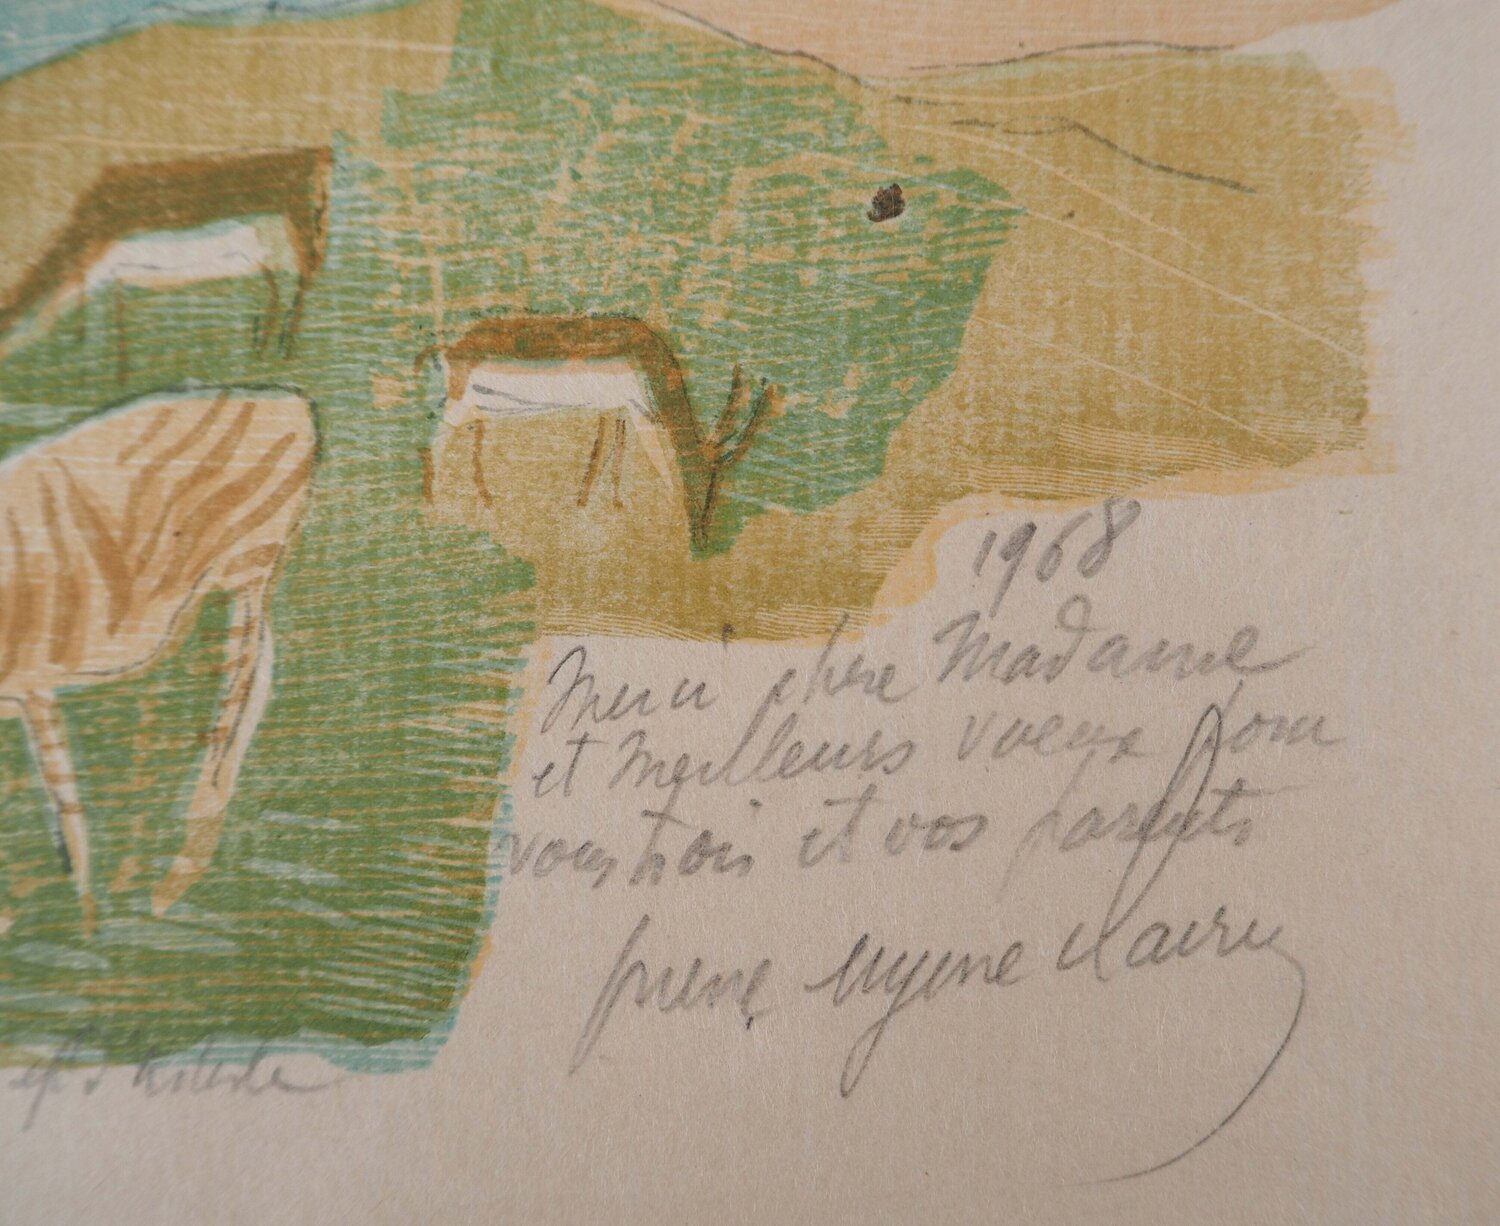 1968
Merci chère Madame
et meilleurs voeux pour
vous trois et vos parents
pierre eugène clairin
ep d'artiste